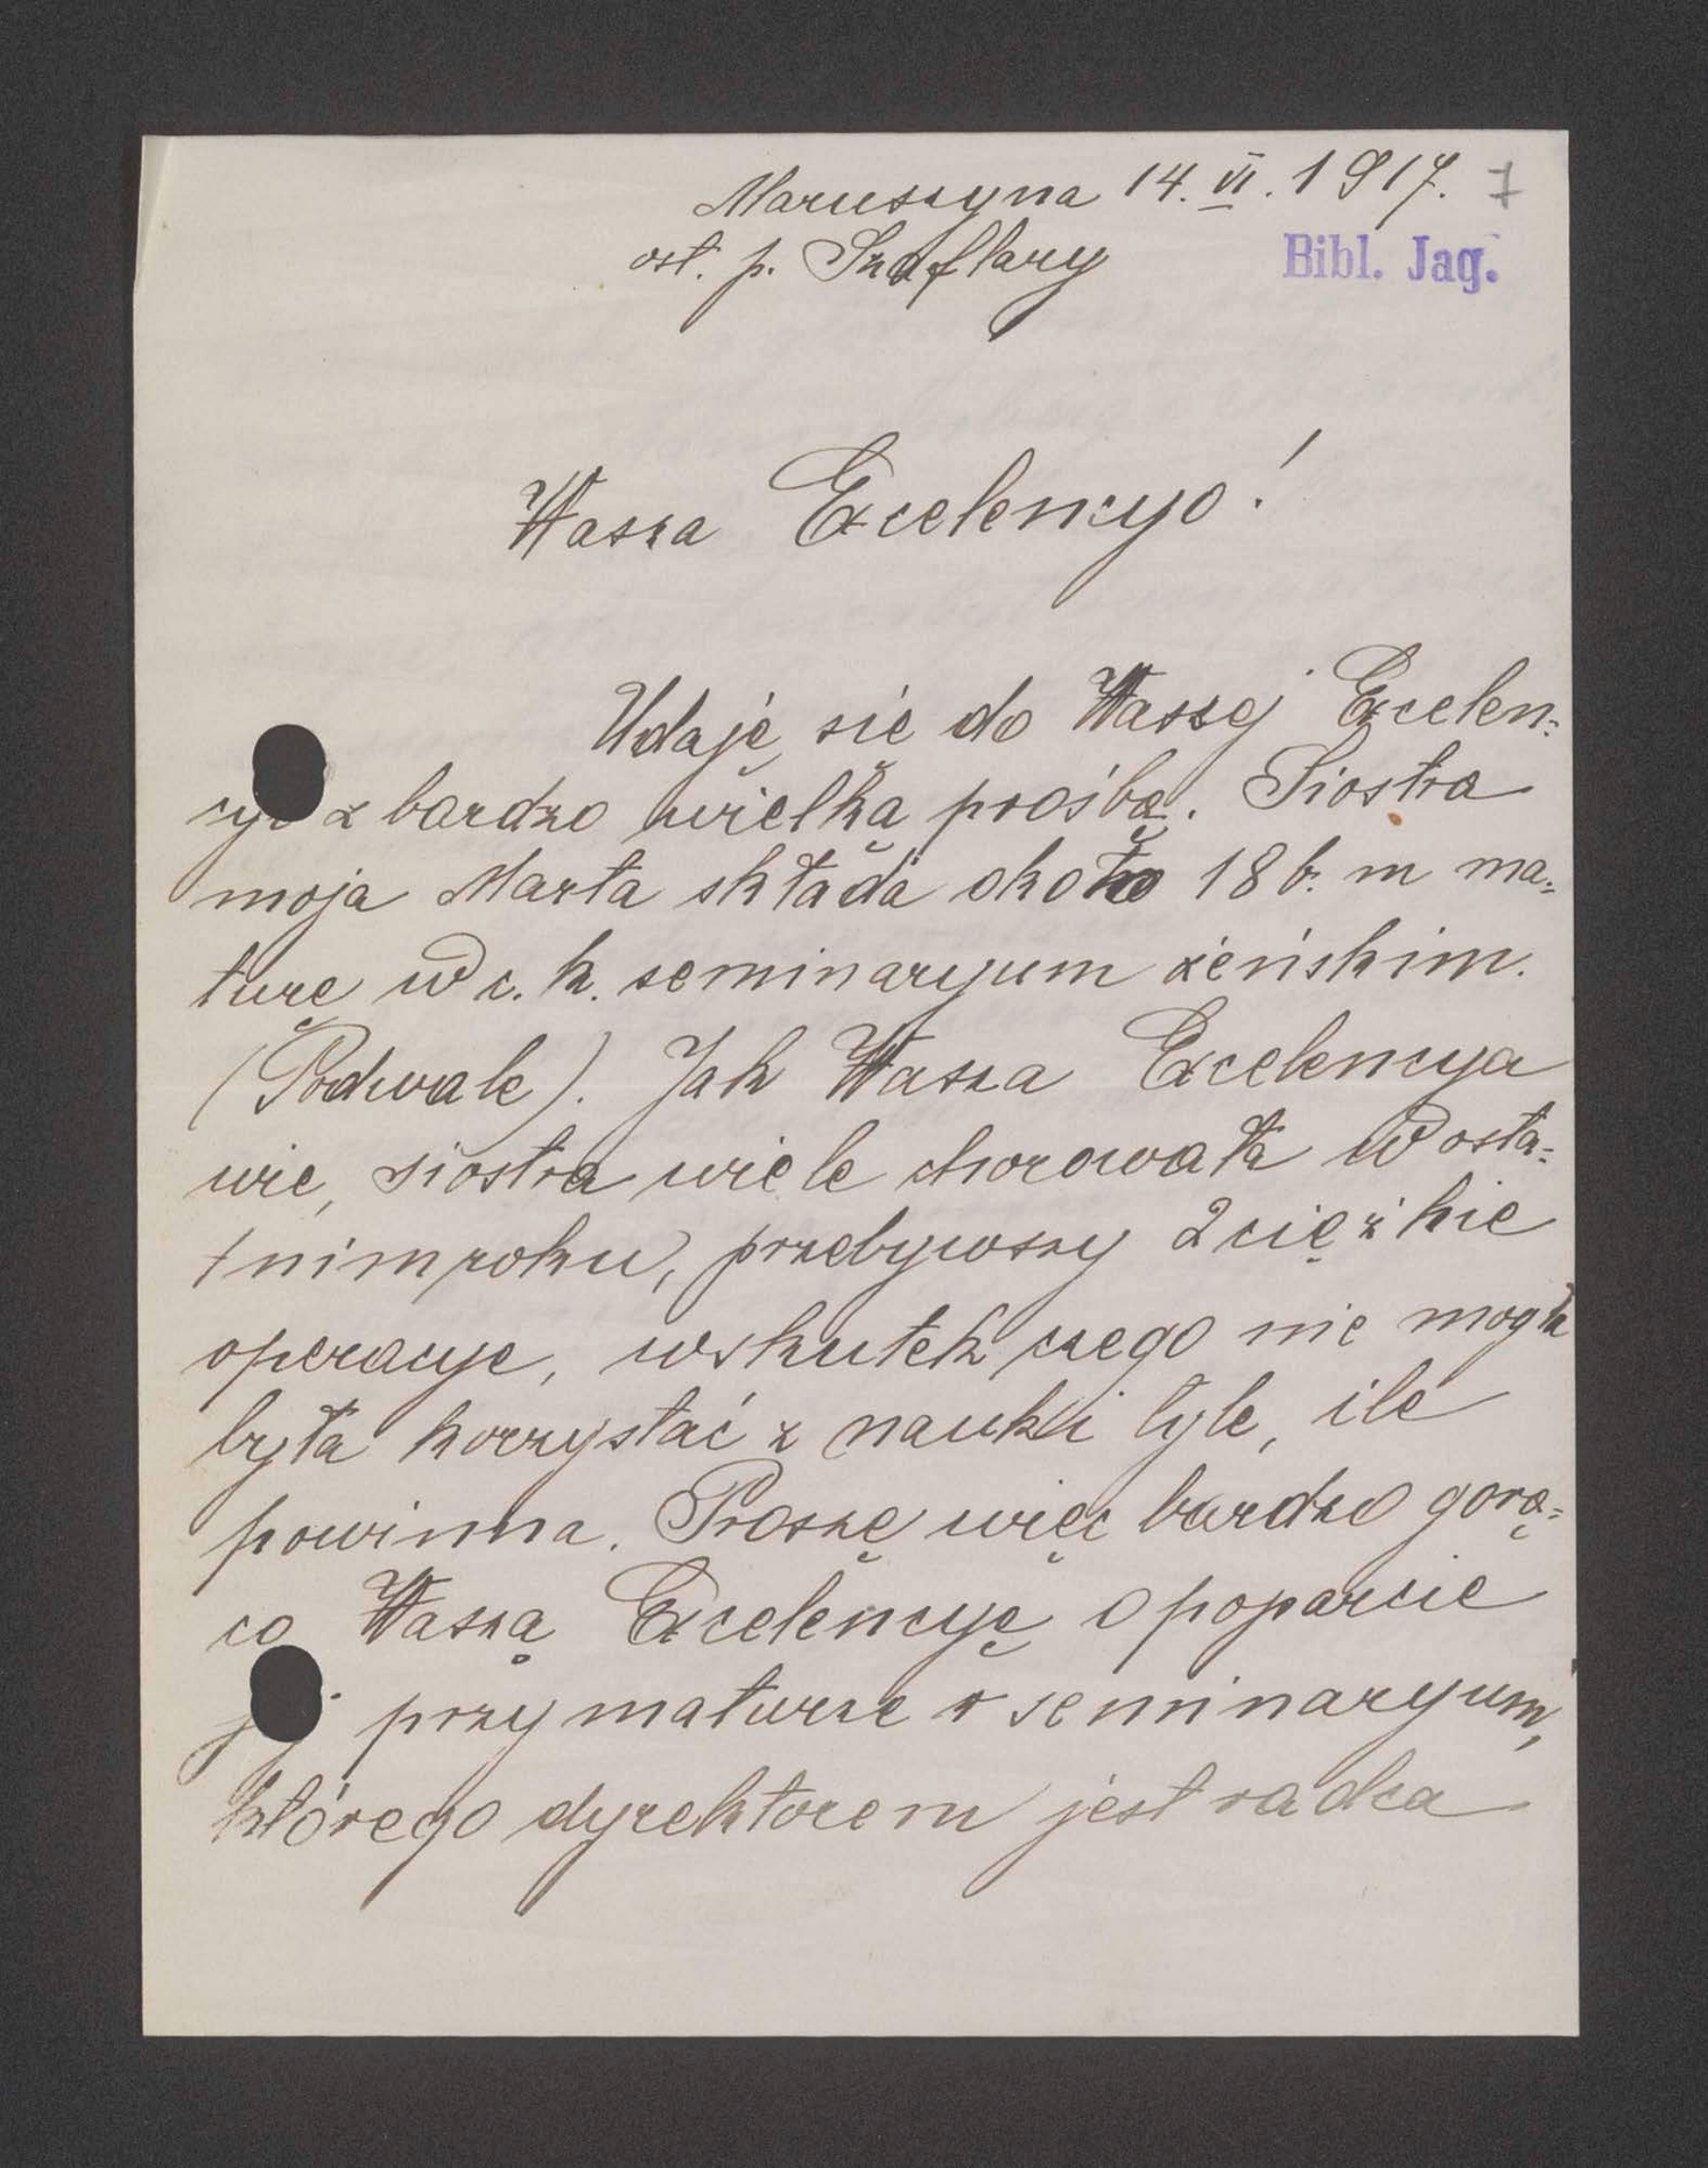 Maruszyna 14. VI. 1917. 7
ost. p. Szaflary
Bibl. Jag.
Wasza Excelencyo!
Udaję się do Waszej Excelen=
cyi z bardzo wielką prośbą. Siostra
moja Marta składa około 18 b. m ma=
turę w c. k. seminaryum żeńskim.
(Podwale). Jak Wasza Excelencya
wie, siostra wiele chorowała w osta=
tnim roku, przebywszy 2 ciężkie
operacye, wskutek czego nie mogła
była korzystać z nauki tyle, ile
powinna. Proszę więc bardzo gorą=
co Waszą Excelencyę o poparcie
jej przy maturze w seminaryum,
którego dyrektorem jest radca